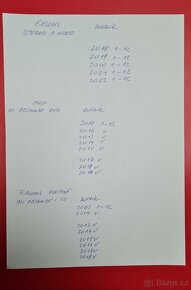 ČASOPIS ROČNÍK
STEREO A VIDEO
2018 1-12
2019 1-12
2020 1-12
2021 1-12
2022 1-12
ROČNÍK
DVD
2011 1-12
2012 V
2013 V
2014 V
2015 V
2017 V
2018 V
2019 V
ČASOPIS ROČNÍK
CD
2003 1-12
2004 V
2013 V
2014 V
2015 V
2016 V
2017 V
2018 V
Bazoš.cz